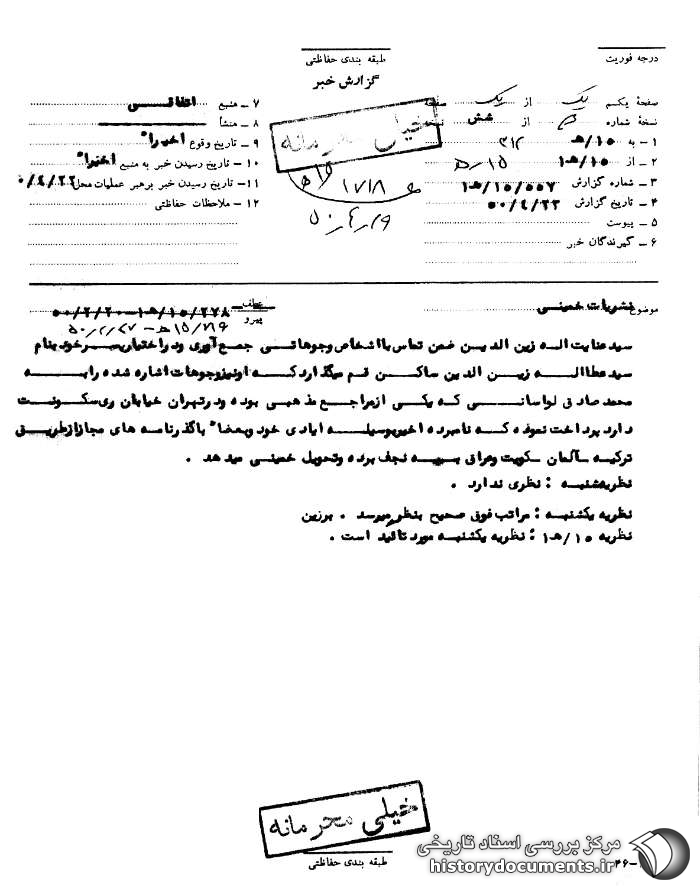 درجه فوریت
طبقه بندی حفاظتی
گزارش خبر
صفحهٔ یکم یک از یک صفحه
نسخهٔ شماره از شش نسخه
۱ ـ به ۱۰/هـ ۳۱۲
۲ ـ از ۱۰/هـ۱ ۱۵هـ
۳ ـ شماره گزارش ۱هـ/۱۰/۵۵۷
۴ ـ تاریخ گزارش ۵۰/۴/۲۳
۵ ـ پیوست
۶ ـ گیرندگان خبر
۷ ـ منبع اتفاقی
۸ ـ منشأ
۹ ـ تاریخ وقوع اخیراً
۱۰ ـ تاریخ رسیدن خبر به منبع اخیراً
۱۱ـ تاریخ رسیدن خبر برهبر عملیات محل ۵۰/۴/۲۲
۱۲ ـ ملاحظات حفاظتی
خیلی محرمانه
۱۷۱۸
۵۰/۴/۲۹
موضوع نشریات خمینی
عطف
پیرو
۵۰/۲/۲۰-۱هـ/۱۰/۲۷۸
سید عنایت اله زین الدین ضمن تماس با اشخاص وجوهاتی جمع آوری و در اختیار پسر خود بنام
سید عطااله زین الدین ساکن قم میگذارد که او نیز وجوهات اشاره شده را به
محمد صادق لواسانی که یکی از مراجع مذهبی بوده و در تهران خیابان ری سکونت
دارد پرداخت نموده که نامبرده اخیر بوسیله ایادی خود و بعضاً با گذرنامه های مجاز از طریق
ترکیه ـ آلمان ـ کویت و عراق به نجف برده و تحویل خمینی میدهد .
نظریه شنبه : نظری ندارد .
نظریه یکشنبه : مراتب فوق صحیح بنظر میرسد . برزین
نظریه ۱۰/هـ۱ : نظریه یکشنبه مورد تأئید است .
خیلی محرمانه
طبقه بندی حفاظتی
مرکز بررسی اسناد تاریخی
historydocuments.ir